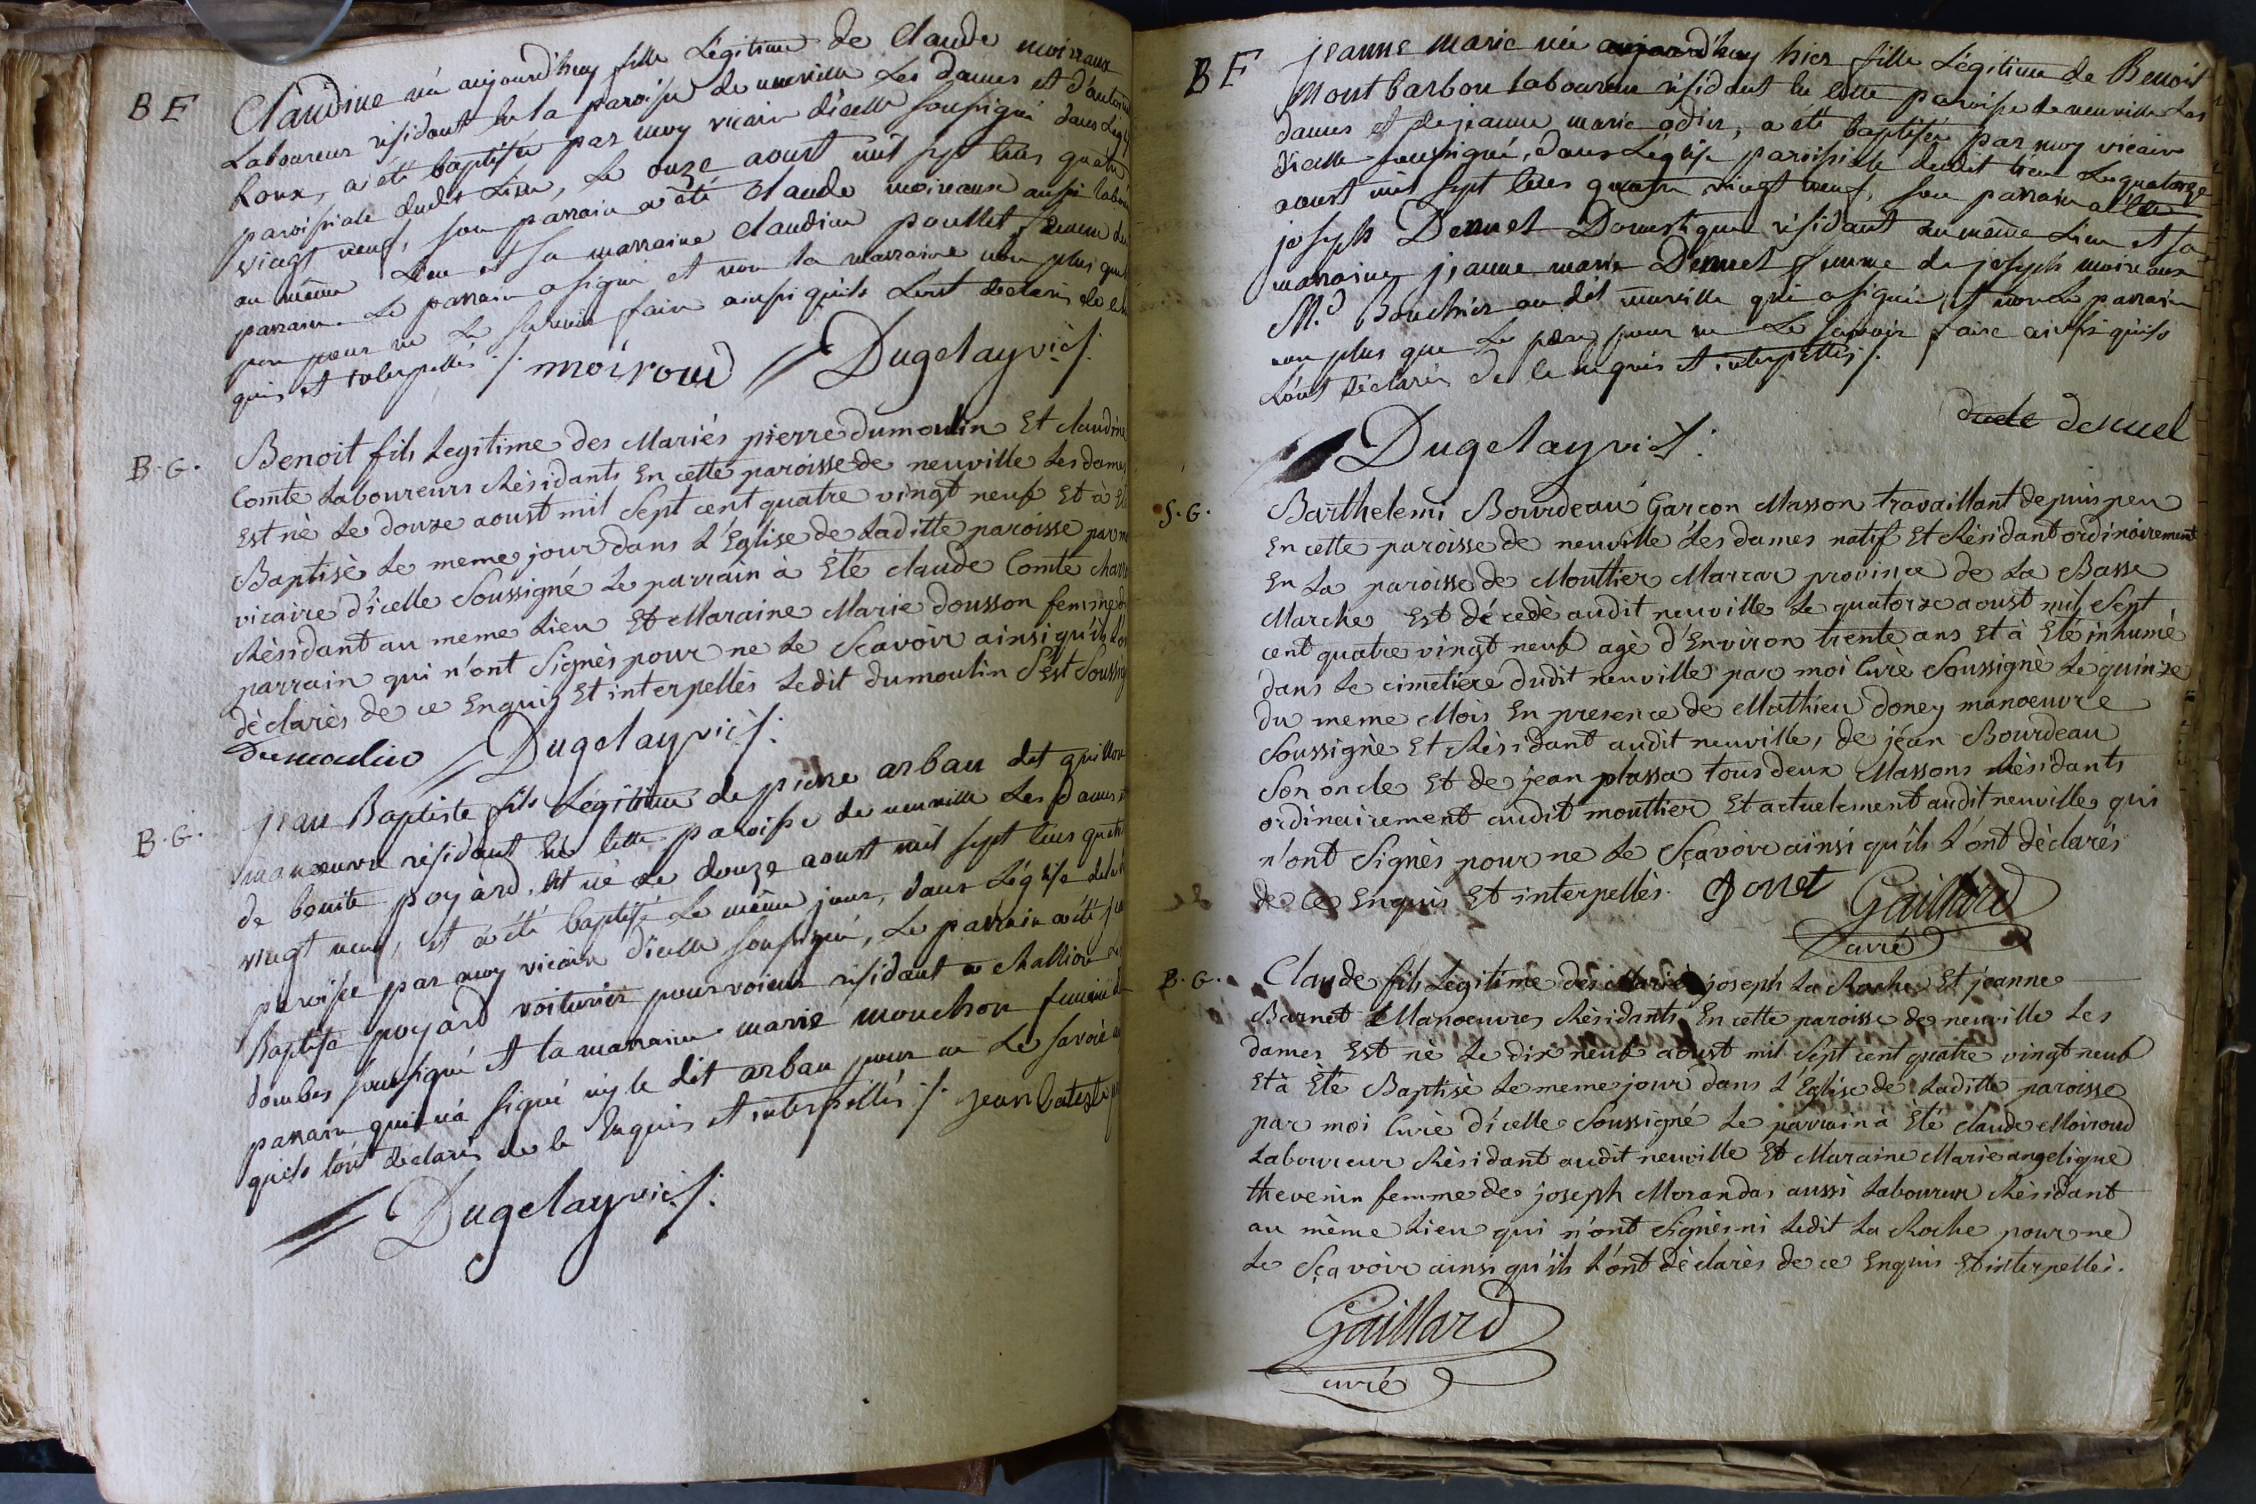 B F
Claudine née aujourd'huy fille Légitime de Claude moireaux
Laboureur résidant en la paroisse de neuville Les dames et d'antoin
Roux, a été baptisée par moy vicaire d'icelle soussigné dans L'eg
paroissiale dudit Lieu, Le onze aoust mil sept cens quatre
vingt neuf, son parrain a été Claude moireaux aussi labou
au même Lieu et sa marraine Claudine poullet femme du
parrain. Le parrain a signé et non la marraine non plus que
pour ne Le savoir faire ainsi qu'ils L'ont déclaré de ce en
quis et interpellés ./. moiroud Dugelay vic./.
B. G.
Benoit fils Legitime des Mariés pierre dumoulin Et claudine
Comte Laboureurs Résidants En cette paroisse de neuville Les dames
Est nè Le douze aoust mil Sept cent quatre vingt neuf Et à Eté
Baptisè Le meme jour dans L'Eglise de Laditte paroisse par m
vicaire d'icelle Soussigné Le parrain à Eté claude Comte charr
Résidant au meme Lieu Et Maraine Marie dousson femme d
parrain qui n'ont Signès pour ne Le Sçavoir ainsi qu'ils L'o
dèclarès de ce Enquis Et interpellès Ledit dumoulin S'est Soussig
Dumoulin Dugelay vic./.
B. G.
jean Baptiste fils Légitime de pierre arban dit guillon
manœuvre résidant en cette paroisse de neuville Les dames et
de benoite poyard, est né Le douze aoust mil sept cens quatre
vingt neuf, et a été baptisé Le même jour, dans L'église de la
paroisse par moy vicaire d'icelle soussigné, Le parrain a été jea
Baptiste poyard voiturier pourvoieur résidant a chatillon
dombes soussigné et la marraine marie mouchon femme d
parrain qui n'a signé ny le dit arban pour ne Le savoir
qu'ils L'ont déclaré de ce Enquis et interpellés ./. jean batiste
Dugelay vic./.
B F
jeanne marie née aujourd'huy hier fille Légitime de Benoit
Montbarbon Laboureur résidant en cette paroisse de neuville Les
dames et de jeanne marie odin, a été baptisée par moy vicaire
d'icelle soussigné, dans L'église paroissiale dudit lieu Le quatorze
aoust mil sept cens quatre vingt neuf, son parrain a été
joseph Demet Domestique résidant au même Lieu et sa
marraine jeanne marie Demet femme de joseph moireaux
M.d Boucher au dit neuville qui a signée, et non le parrain
non plus que Le père pour ne Le savoir faire ainsi qu'ils
L'ont déclaré de ce enquis et interpellés ./.
Dugelay vic./.
S. G.
Barthelemi Bourdeau Garçon Masson travaillant depuis peu
En cette paroisse de neuville Les dames natif Et Résidant ordinairement
En La paroisse de Mouttier Marcar province de La Basse
Marche Est décedè audit neuville Le quatorze aoust mil Sept
cent quatre vingt neuf agè d'Environ trente ans Et à Eté inhumé
dans Le cimetiere dudit neuville par moi Curè Soussignè Le quinze
du meme Mois En presence de Mathieu doney manoeuvre
Soussignè Et Résidant audit neuville, de jéan Bourdeau
Son oncle Et de jean plassa tous deux Massons Résidants
ordinairement audit mouttier Et actuelement audit neuville qui
n'ont Signès pour ne Le Sçavoir ainsi qu'ils L'ont dèclarès
de ce Enquis Et interpellès. Donet Gaillard
curé
B. G.
Claude fils Legitime des Mariés joseph La Roche Et jeanne
Barnet Manoeuvres Résidants En cette paroisse de neuville Les
dames Est nè Le dix neuf aoust mil Sept cent quatre vingt neuf
Et à Etè Baptisè Le meme jour dans L'Eglise de Laditte paroisse
par moi Curè d'icelle Soussigné Le parrain à Etè claude Moiroud
Laboureur Rèsidant audit neuville Et Maraine Marie angelique
thevenin femme de joseph Morandas aussi Laboureur Rèsidant
au même Lieu qui n'ont Signès ni Ledit La Roche pour ne
Le Sçavoir ainsi qu'ils L'ont dèclarès de ce Enquis Et interpellès.
Gaillard
curé